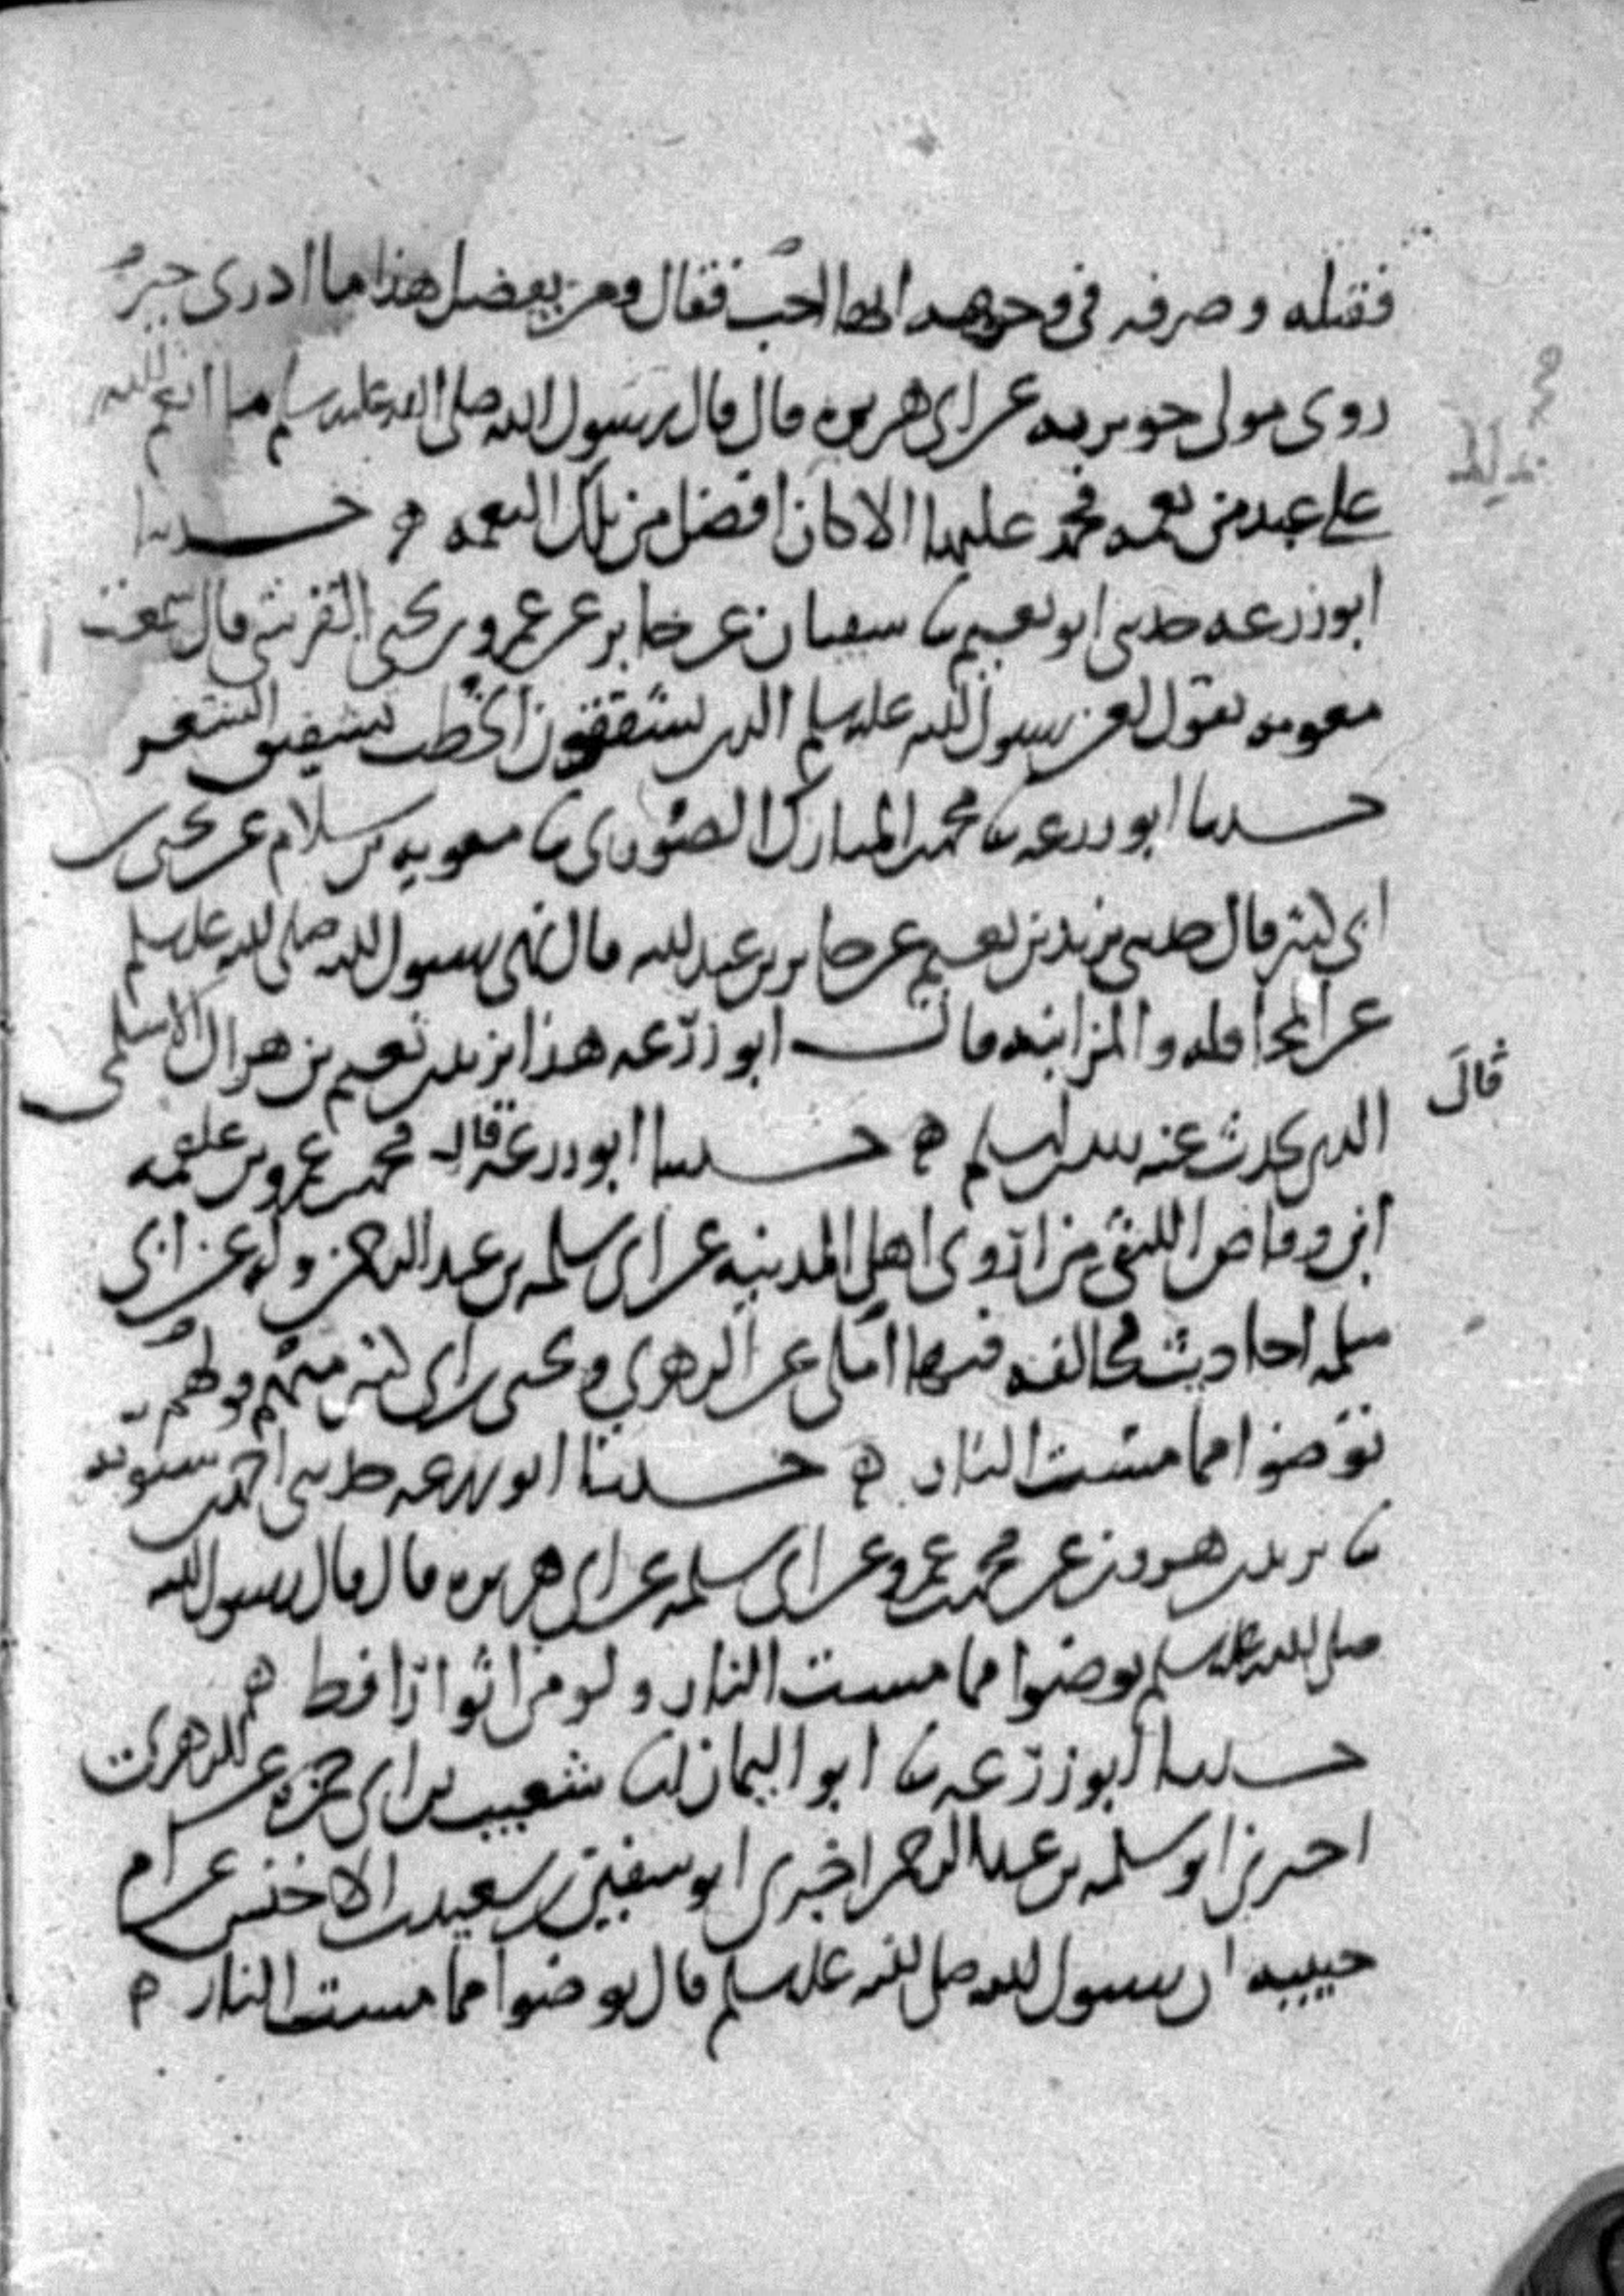 فقتله وصرفه في وجوهه احب فقال ومن يفضل هذا ما ادري خبر
روى مولى جويرية عن ابي هريرة قال قال رسول الله صلى الله عليه وسلم ما انعم الله
على عبد من نعمة فحمد عليها الا كان افضل من تلك النعمة ه حدثنا
ابو زرعة حدثني ابو نعيم نا سفيان عن جابر عن عمرو بن يحيى القرشي قال سمعت
معوية يقول لعن رسول الله عليه وسلم الذين يشققون الخطب تشقيق الشعر
حدثنا ابو زرعة نا محمد بن المبارك الصوري نا معوية بن سلام عن يحيى بن
ابي كثير قال حدثني يزيد بن نعيم عن جابر بن عبد الله قال نهى رسول الله صلى الله عليه وسلم
عن المحاقلة والمزابنة قال ابو زرعة هذا يزيد بن نعيم بن هزال الاسلمي
الذي يحدث عنه زيد بن اسلم ه حدثنا ابو زرعة قال محمد بن عمرو بن علقمة
قال
ابن وقاص الليثي من اروى اهل المدينة عن ابي سلمة بن عبد الرحمن وله عن ابي
سلمة احاديث يخالفه فيها عن الزهري ويحيى بن ابي كثير منهم قولهم
توضوا مما مست النار ه حدثنا ابو زرعة حدثني احمد بن شبويه
نا يزيد بن هرون عن محمد بن عمرو عن ابي سلمة عن ابي هريرة قال قال رسول الله
صلى الله عليه وسلم توضوا مما مست النار ولو من اثوار اقط ه
حدثنا ابو زرعة نا ابو اليمان نا شعيب بن ابي حمزة عن الزهري
اخبرني ابو سلمة بن عبد الرحمن اخبرني ابو سفين بن سعيد بن الاخنس عن ام
حبيبة ان رسول الله صلى الله عليه وسلم قال توضوا مما مست النار ه